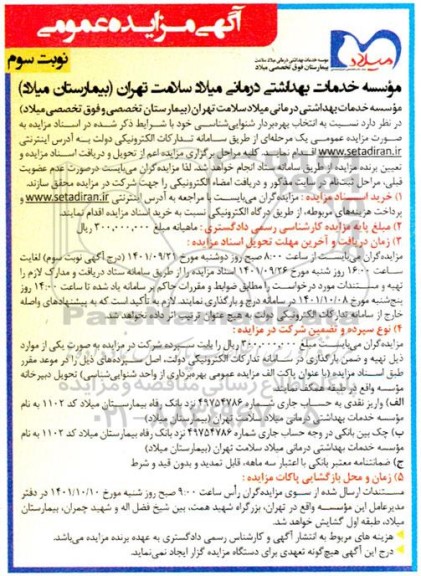 آگهی مزایده عمومی
نوبت سوم
میلاد
موسسه خدمات بهداشتی درمانی میلاد سلامت
بیمارستان فوق تخصصی میلاد
مؤسسه خدمات بهداشتی درمانی میلاد سلامت تهران (بیمارستان میلاد)
مؤسسه خدمات بهداشتی درمانی میلاد سلامت تهران (بیمارستان تخصصی و فوق تخصصی میلاد)
در نظر دارد نسبت به انتخاب بهره‌بردار شنوایی‌شناسی خود با شرایط ذکر شده در اسناد مزایده به
صورت مزایده عمومی یک مرحله‌ای از طریق سامانه تدارکات الکترونیکی دولت به آدرس اینترنتی
www.setadiran.ir اقدام نمایند. کلیه مراحل برگزاری مزایده اعم از تحویل و دریافت اسناد مزایده و
تعیین برنده مزایده از طریق سامانه ستاد انجام خواهد شد. لذا مزایده‌گران می‌بایست درصورت عدم عضویت
قبلی، مراحل ثبت‌نام در سایت مذکور و دریافت امضاء الکترونیکی را جهت شرکت در مزایده محقق سازند.
۱) خرید اسناد مزایده : مزایده‌گران می‌بایست با مراجعه به آدرس اینترنتی www.setadiran.ir و
پرداخت هزینه‌های مربوطه، از طریق درگاه الکترونیکی نسبت به خرید اسناد مزایده اقدام نمایند.
۲) مبلغ پایه مزایده کارشناسی رسمی دادگستری : ماهیانه مبلغ ۳۰۰,۰۰۰,۰۰۰ ریال
۳) زمان دریافت و آخرین مهلت تحویل اسناد مزایده :
مزایده‌گران می‌بایست از ساعت ۸:۰۰ صبح روز دوشنبه مورخ ۱۴۰۱/۰۹/۲۱ (درج آگهی نوبت سوم) لغایت
ساعت ۱۶:۰۰ روز شنبه مورخ ۱۴۰۱/۰۹/۲۶ اسناد مزایده را از طریق سامانه ستاد دریافت و مدارک لازم را
تهیه و مستندات مورد درخواست را مطابق ضوابط و مقررات حاکم بر سامانه یاد شده تا ساعت ۱۴:۰۰ روز
پنج‌شنبه مورخ ۱۴۰۱/۱۰/۰۸ در سامانه درج و بارگذاری نمایند. لازم به تأکید است که به پیشنهادهای واصله
خارج از سامانه تدارکات الکترونیکی دولت به هیچ عنوان ترتیب اثر داده نخواهد شد.
۴) نوع سپرده و تضمین شرکت در مزایده :
مزایده‌گران می‌بایست مبلغ ۳۰۰,۰۰۰,۰۰۰ ریال را بابت سپرده شرکت در مزایده به صورت یکی از موارد
ذیل تهیه و ضمن بارگذاری در سامانه تدارکات الکترونیکی دولت، اصل سپرده‌های ذیل را در موعد مقرر
طبق اسناد مزایده (با عنوان پاکت الف مزایده عمومی بهره‌برداری از واحد شنوایی‌شناسی) تحویل دبیرخانه
مؤسسه واقع در طبقه همکف نمایند.
الف) واریز نقدی به حساب جاری شماره ۴۹۷۵۴۷۸۶ نزد بانک رفاه بیمارستان میلاد کد ۱۱۰۲ به نام
مؤسسه خدمات بهداشتی درمانی میلاد سلامت تهران (بیمارستان میلاد)
ب) چک بین بانکی در وجه حساب جاری شماره ۴۹۷۵۴۷۸۶ نزد بانک رفاه بیمارستان میلاد کد ۱۱۰۲ به نام
مؤسسه خدمات بهداشتی درمانی میلاد سلامت تهران (بیمارستان میلاد)
ج) ضمانتنامه معتبر بانکی با اعتبار سه ماهه، قابل تمدید و بدون قید و شرط
۵) زمان و محل بازگشایی پاکات مزایده :
مستندات ارسال شده از سوی مزایده‌گران رأس ساعت ۹:۰۰ صبح روز شنبه مورخ ۱۴۰۱/۱۰/۱۰ در دفتر
مدیرعامل این مؤسسه واقع در تهران، بزرگراه شهید همت، بین شیخ فضل اله و شهید چمران، بیمارستان
میلاد، طبقه اول گشایش خواهد شد.
هزینه های مربوط به انتشار آگهی و کارشناس رسمی دادگستری به عهده برنده مزایده می‌باشد.
درج این آگهی هیچ‌گونه تعهدی برای دستگاه مزایده گزار ایجاد نمی‌نماید.